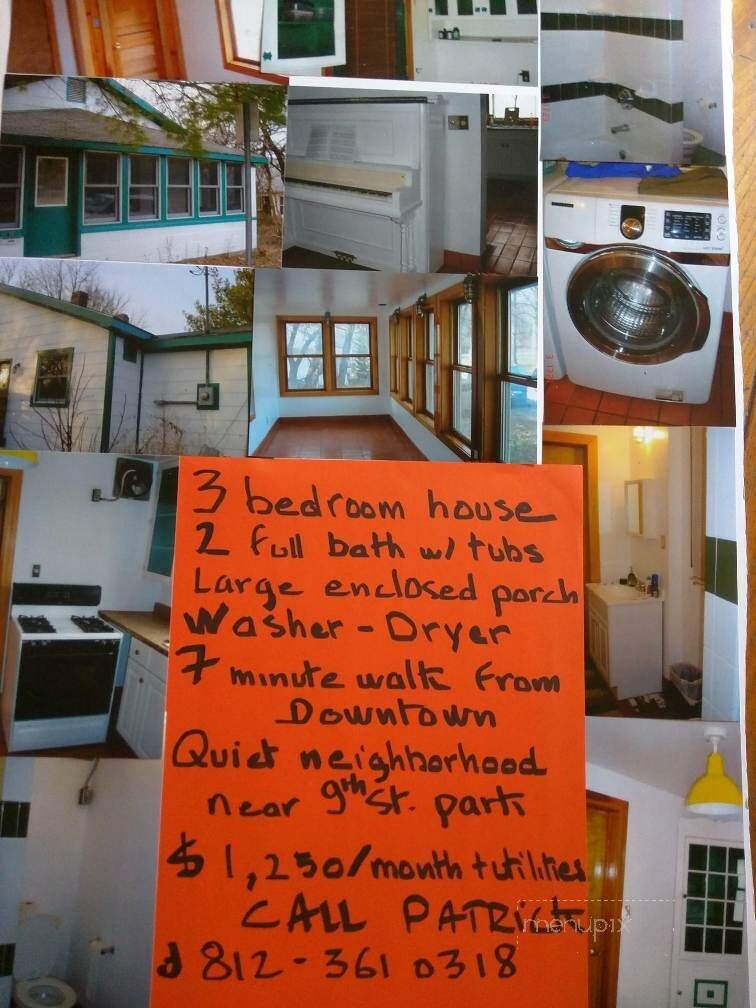 3 bedroom house
2 full bath w/ tubs
Large enclosed porch
Washer - Dryer
7 minute walk from
Downtown
Quiet neighborhood
near 9th St. park
$1,250/month + utilities
CALL PATRICK
812-361 0318
menupix